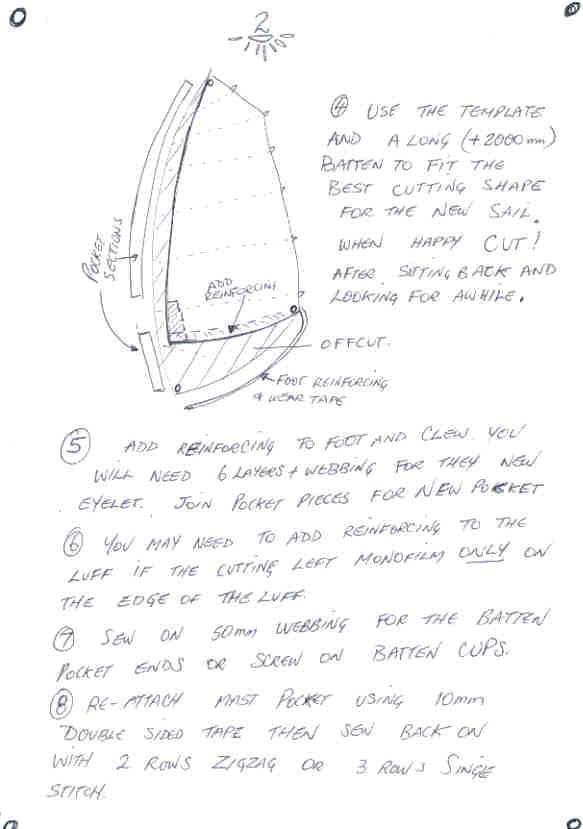 2
④ USE THE TEMPLATE
AND A LONG (+2000mm)
BATTEN TO FIT THE
BEST CUTTING SHAPE
FOR THE NEW SAIL.
WHEN HAPPY CUT!
AFTER SITTING BACK AND
LOOKING FOR AWHILE.
POCKET
SECTIONS
ADD
REINFORCING
OFFCUT.
FOOT REINFORCING
& WEAR TAPE
⑤ ADD REINFORCING TO FOOT AND CLEW. YOU
WILL NEED 6 LAYERS + WEBBING FOR THEY NEW
EYELET. JOIN POCKET PIECES FOR NEW POCKET
⑥ YOU MAY NEED TO ADD REINFORCING TO THE
LUFF IF THE CUTTING LEFT MONOFILM ONLY ON
THE EDGE OF THE LUFF.
⑦ SEW ON 50mm WEBBING FOR THE BATTEN
POCKET ENDS OR SCREW ON BATTEN CUPS.
⑧ RE-ATTACH MAST POCKET USING 10mm
DOUBLE SIDED TAPE THEN SEW BACK ON
WITH 2 ROWS ZIGZAG OR 3 ROWS SINGLE
STITCH.